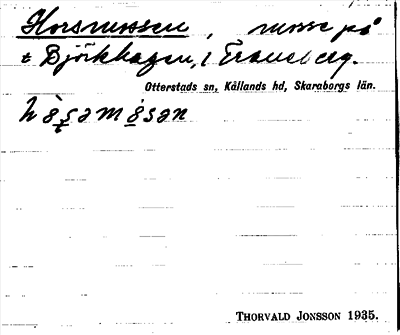 Horsmossen, mosse på
t Björkhagen, i Traneberg.
Otterstads sn, Kållands hd, Skaraborgs län.
THORVALD JONSSON 1935.